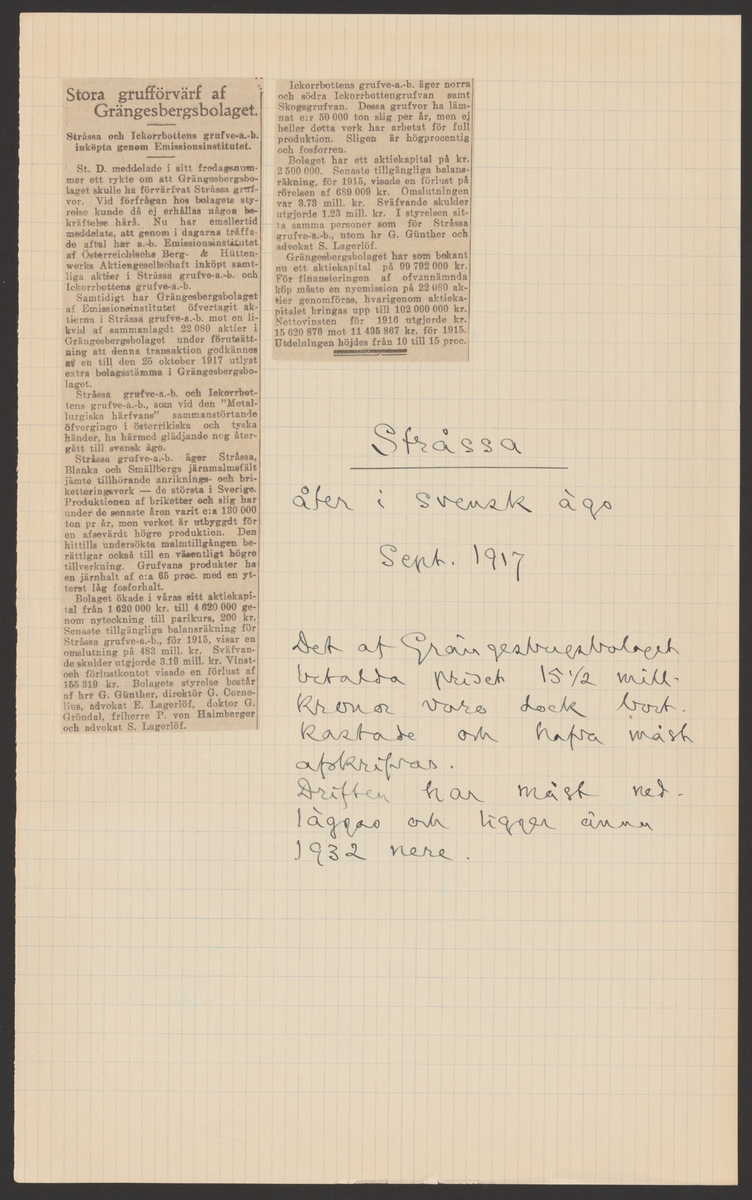 Stora grufförvärf af
Grängesbergsbolaget.
Stråssa och Ickorrbottens grufve-a.-b.
inköpta genom Emissionsinstitutet.
St. D. meddelade i sitt fredagsnum-
mer ett rykte om att Grängesbergsbo-
laget skulle ha förvärfvat Stråssa gruf-
vor. Vid förfrågan hos bolagets sty-
relse kunde då ej erhållas någon be-
kräftelse härå. Nu har emellertid
meddelats, att genom i dagarna träffa-
de aftal har a.-b. Emissionsinstitutet
af Österreichische Berg- & Hütten-
werks Aktiengesellschaft inköpt samt-
liga aktier i Stråssa grufve-a.-b. och
Ickorrbottens grufve-a.-b.
Samtidigt har Grängesbergsbolaget
af Emissionsinstitutet öfvertagit ak-
tierna i Stråssa grufve-a.-b. mot en li-
kvid af sammanlagdt 22 080 aktier i
Grängesbergsbolaget under förutsätt-
ning att denna transaktion godkännes
af en till den 25 oktober 1917 utlyst
extra bolagsstämma i Grängesbergsbo-
laget.
Stråssa grufve-a.-b. och Ickorrbot-
tens grufve-a.-b., som vid den "Metal-
lurgiska härfvans" sammanstörtande
öfvergingo i österrikiska och tyska
händer, ha härmed glädjande nog åter-
gått till svensk ägo.
Stråssa grufve-a.-b. äger Stråssa,
Blanka och Smällbergs järnmalmsfält
jämte tillhörande anriknings- och bri-
ketteringsverk — de största i Sverige.
Produktionen af briketter och slig har
under de senaste åren varit c:a 130 000
ton pr år, men verket är utbyggdt för
en afsevärdt högre produktion. Den
hittills undersökta malmtillgången be-
rättigar också till en väsentligt högre
tillverkning. Grufvans produkter ha
en järnhalt af c:a 65 proc. med en yt-
terst låg fosforhalt.
Bolaget ökade i våras sitt aktiekapi-
tal från 1 620 000 kr. till 4 620 000 ge-
nom nyteckning till parikurs, 200 kr.
Senaste tillgängliga balansräkning för
Stråssa grufve-a.-b., för 1915, visar en
omslutning på 483 mill. kr. Sväfvan-
de skulder utgjorde 3.19 mill. kr. Vinst-
och förlustkontot visade en förlust af
155 319 kr. Bolagets styrelse består
af hrr G. Günther, direktör G. Corne-
lius, advokat E. Lagerlöf, doktor G.
Gröndal, friherre P. von Haimberger
och advokat S. Lagerlöf.
Ickorrbottens grufve-a.-b. äger norra
och södra Ickorrbottengrufvan samt
Skogsgrufvan. Dessa grufvor ha läm-
nat c:r 50 000 ton slig per år, men ej
heller detta verk har arbetat för full
produktion. Sligen är högprocentig
och fosforren.
Bolaget har ett aktiekapital på kr.
2 500 000. Senaste tillgängliga balans-
räkning, för 1915, visade en förlust på
rörelsen af 689 009 kr. Omslutningen
var 3.73 mill. kr. Sväfvande skulder
utgjorde 1.23 mill. kr. I styrelsen sit-
ta samma personer som för Stråssa
grufve-a.-b., utom hr G. Günther och
advokat S. Lagerlöf.
Grängesbergsbolaget har som bekant
nu ett aktiekapital på 99 792 000 kr.
För finansieringen af ofvannämnda
köp måste en nyemission på 22 080 ak-
tier genomföras, hvarigenom aktieka-
pitalet bringas upp till 102 000 000 kr.
Nettovinsten för 1916 utgjorde kr.
15 620 876 mot 11 435 867 kr. för 1915.
Utdelningen höjdes från 10 till 15 proc.
Stråssa
åter i svensk ägo
Sept. 1917
Det af Grängesbergsbolaget
betalda priset 15 1/2 mill.
kronor voro dock bort-
kastade och hafva måst
afskrifvas.
Driften har måst ned-
läggas och ligger ännu
1932 nere.